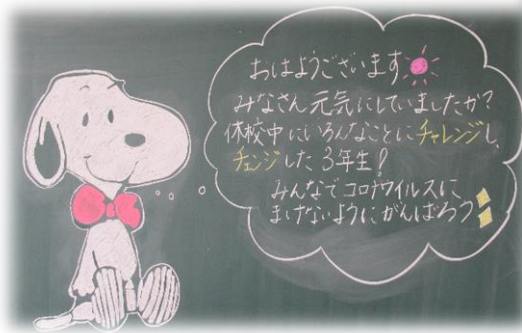 おはようございます
みなさん元気にしていましたか?
休校中にいろんなことにチャレンジし、
チェンジした3年生!
みんなでコロナウイルスに
まけないようにがんばろう